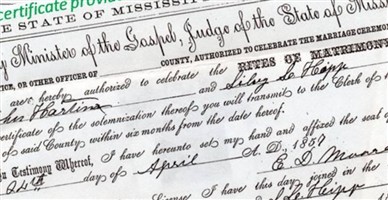 certificate provi
THE STATE OF MISSISSIP
y Minister of the Gospel, Judge of the State of Miss
TICE, OR OTHER OFFICER OF COUNTY, AUTHORIZED TO CELEBRATE THE MARRIAGE CEREMON
are hereby authorized to celebrate the RITES OF MATRIMON
Harline and Lily Le Hipp
certificate of the solemnization thereof you will transmit to the Clerk of
of said County within six months from the date hereof.
In Testimony Whereof, I have hereunto set my hand and affixed the seal of
24th day of April A. D. 1857
License I have this day joined in the E D
Le Hipp